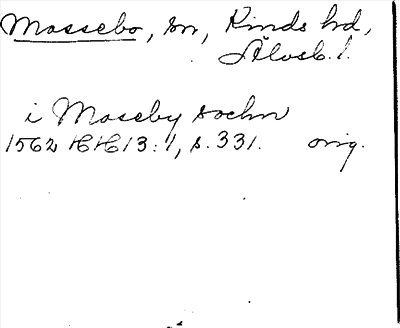 Massebo, sn, Kinds hd,
Älvsb. l.
i Maseby sochn
1562 HH 13:1, s. 331. orig.